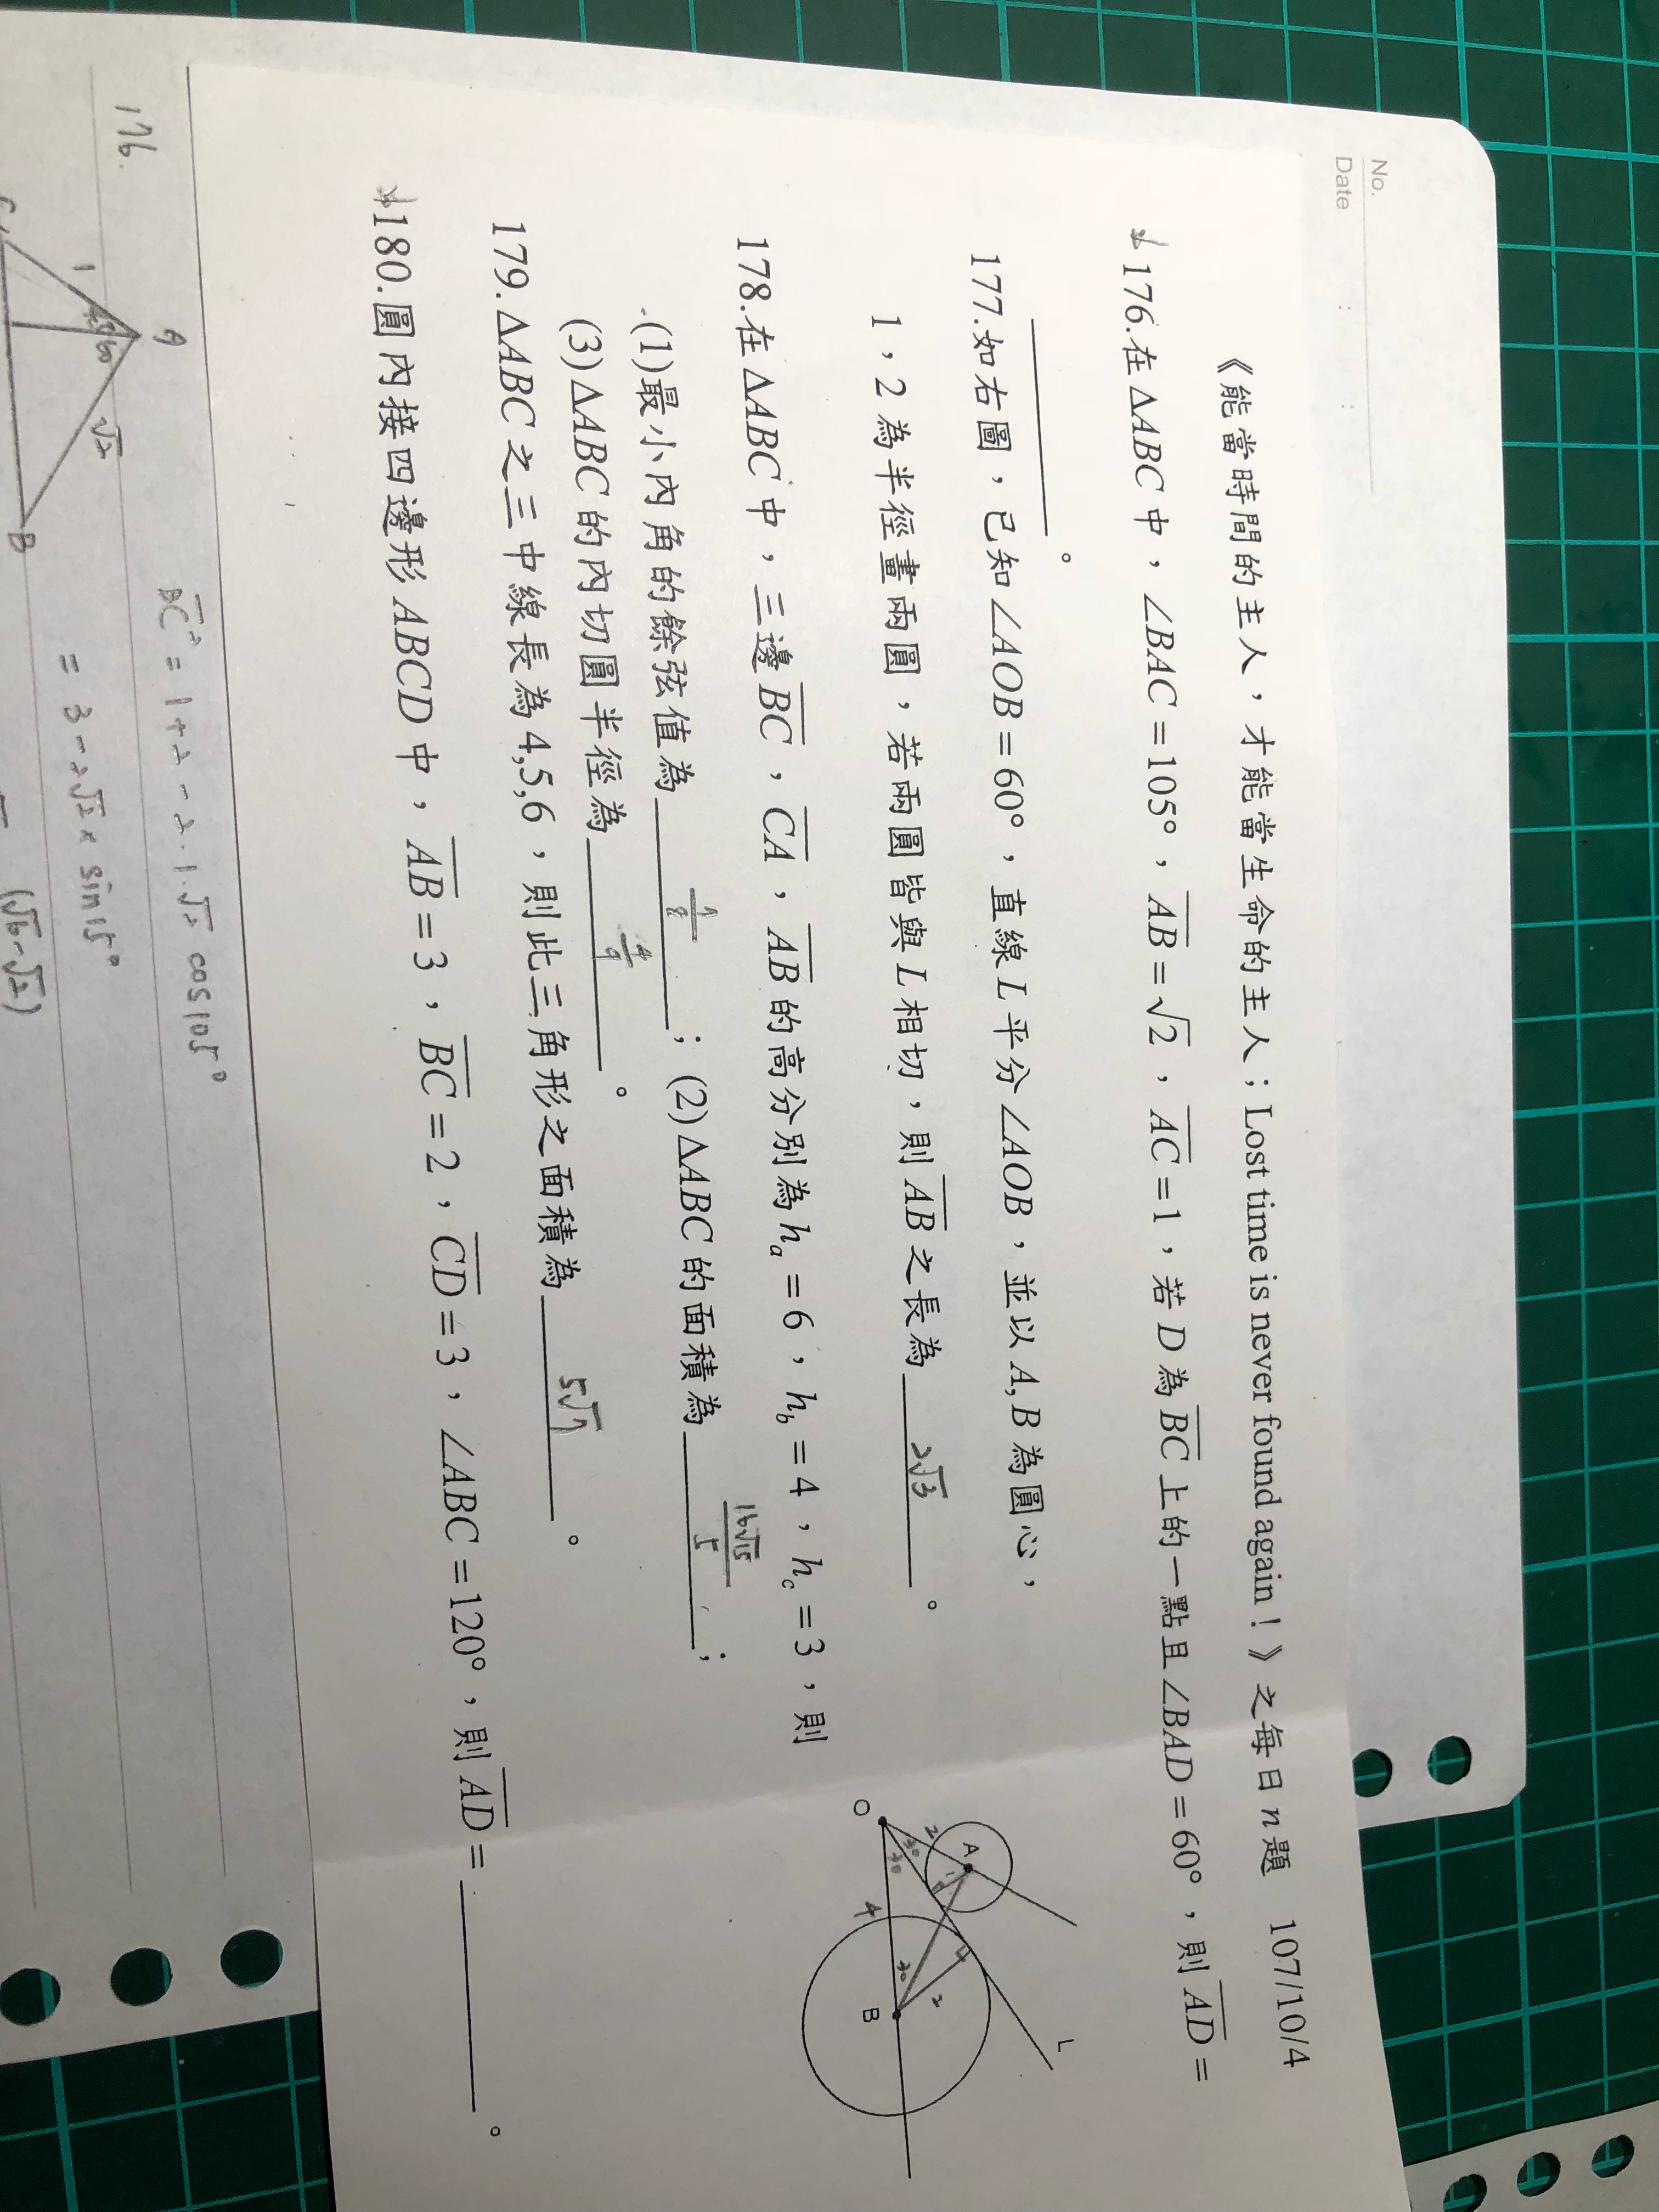 No.
Date : :
《能當時間的主人，才能當生命的主人；Lost time is never found again！》之每日 n 題 107/10/4
176.在 ΔABC 中，∠BAC=105°，AB=√2，AC=1，若 D 為 BC 上的一點且∠BAD=60°，則 AD=
______。
177.如右圖，已知∠AOB=60°，直線 L 平分∠AOB，並以 A,B 為圓心，
1，2 為半徑畫兩圓，若兩圓皆與 L 相切，則 AB 之長為 2√3 。
O A B L
2 30 30 1 4 30 2
178.在 ΔABC 中，三邊 BC，CA，AB 的高分別為 hₐ=6，h_b=4，h_c=3，則
(1)最小內角的餘弦值為 7/8 ；(2)ΔABC 的面積為 16√15/5 ；
(3)ΔABC 的內切圓半徑為 4/9 。
179.ΔABC 之三中線長為 4,5,6，則此三角形之面積為 5√7 。
180.圓內接四邊形 ABCD 中，AB=3，BC=2，CD=3，∠ABC=120°，則 AD=______。
176.
A
1 45 60 √2
C B
BC²=1+2-2·1·√2 cos105°
=3-2√2×sin15°
(√6-√2)